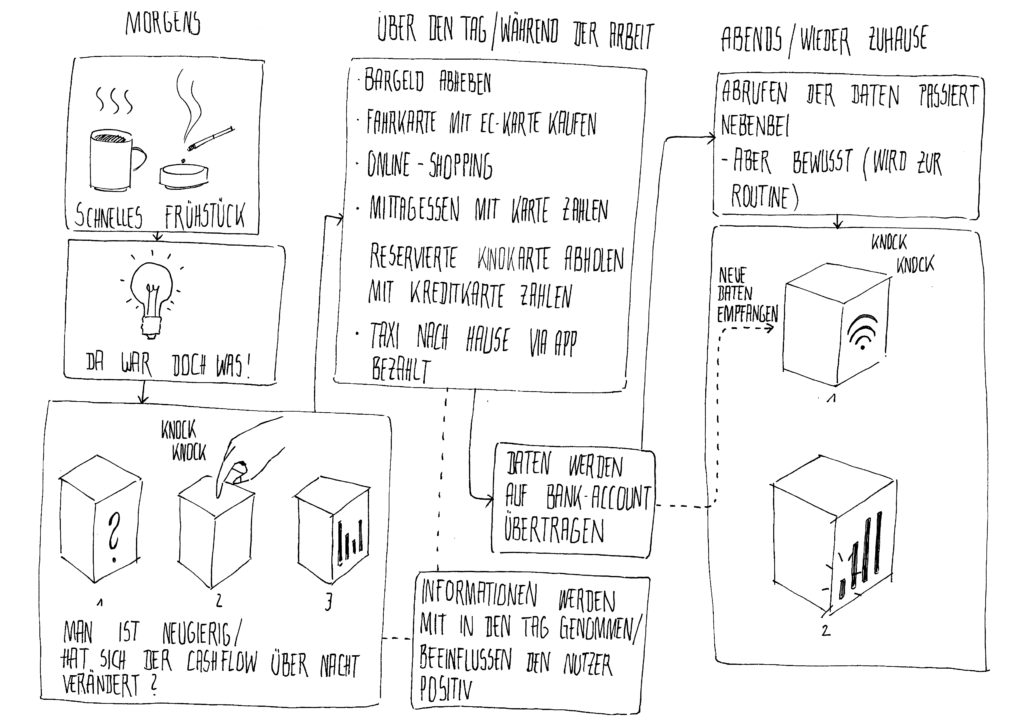 MORGENS
SCHNELLES FRÜHSTÜCK
DA WAR DOCH WAS!
KNOCK
KNOCK
?
1 2 3
MAN IST NEUGIERIG/
HAT SICH DER CASHFLOW ÜBER NACHT
VERÄNDERT?
ÜBER DEN TAG/WÄHREND DER ARBEIT
· BARGELD ABHEBEN
· FAHRKARTE MIT EC-KARTE KAUFEN
· ONLINE-SHOPPING
· MITTAGESSEN MIT KARTE ZAHLEN
RESERVIERTE KINOKARTE ABHOLEN
MIT KREDITKARTE ZAHLEN
· TAXI NACH HAUSE VIA APP
BEZAHLT
DATEN WERDEN
AUF BANK-ACCOUNT
ÜBERTRAGEN
INFORMATIONEN WERDEN
MIT IN DEN TAG GENOMMEN/
BEEINFLUSSEN DEN NUTZER
POSITIV
ABENDS/WIEDER ZUHAUSE
ABRUFEN DER DATEN PASSIERT
NEBENBEI
- ABER BEWUSST (WIRD ZUR
ROUTINE)
KNOCK
KNOCK
NEUE
DATEN
EMPFANGEN
1
2